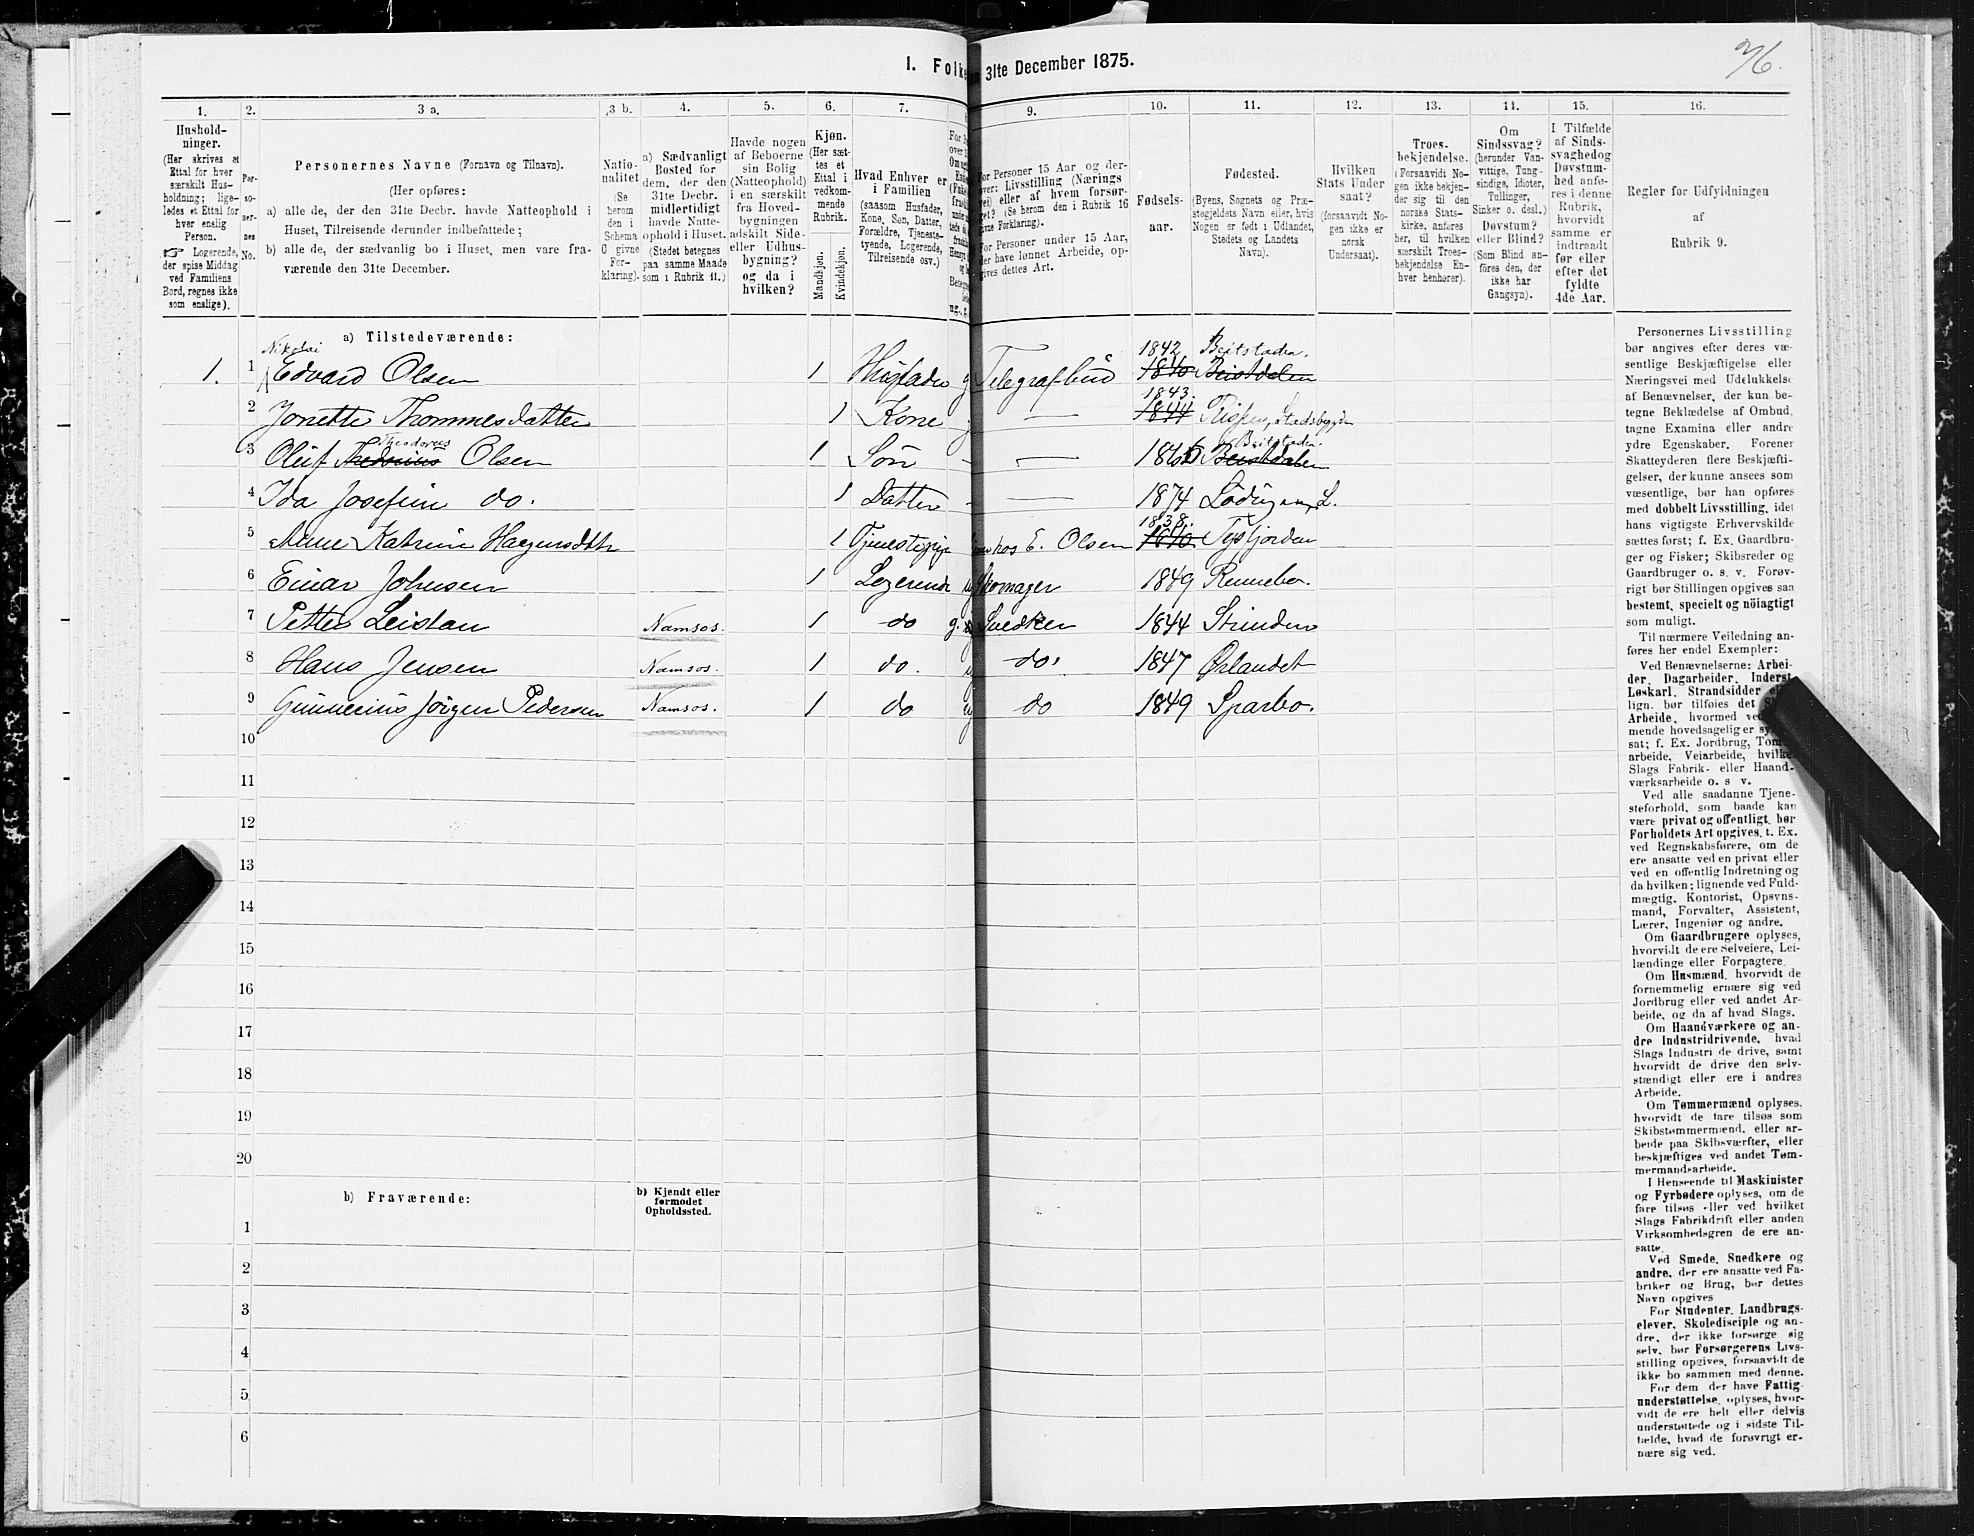 1. Folke en 31te December 1875.
76.
1. 2. 3 a. 3 b. 4. 5. 6. 7. 9. 10. 11. 12. 13. 14. 15. 16.
Hushold-
ninger.
(Her skrives et
Ettal for hver
særskilt Hus-
holdning; lige-
ledes et Ettal for
hver enslig
Person.
☞ Logerende,
der spise Middag
ved Familiens
Bord, regnes ikke
som enslige).
Per-
so-
ner-
nes
No.
Personernes Navne (Fornavn og Tilnavn).
(Her opføres:
a) alle de, der den 31te Decbr. havde Natteophold i
Huset, Tilreisende derunder indbefattede;
b) alle de, der sædvanlig bo i Huset, men vare fra-
værende den 31te December.
Natio-
nalitet
(Se
herom
den i
Schema
O givne
For-
klaring).
a) Sædvanligt
Bosted for
dem, der den
31te Decbr.
midlertidigt
havde Natte-
ophold i Huset.
(Stedet betegnes
paa samme Maade
som i Rubrik 11.)
Havde nogen
af Beboerne
sin Bolig
(Natteophold)
i en særskilt
fra Hoved-
bygningen
adskilt Side-
eller Udhus-
bygning?
og da i
hvilken?
Kjøn.
(Her sæt-
tes et
Ettal i
vedkom-
mende
Rubrik.
Mandkjøn.
Kvindekjøn.
Hvad Enhver er
i Familien
(saasom Husfader,
Kone, Søn, Datter,
Forældre, Tjeneste-
tyende, Logerende,
Tilreisende osv.)
For Personer 15 Aar og der-
over: Livsstilling (Nærings
vei) eller af hvem forsør-
get? (Se herom den i Rubrik 16
givne Forklaring).
For Personer under 15 Aar,
der have lønnet Arbeide, op-
gives dettes Art.
Fødsels-
aar.
Fødested.
(Byens, Sognets og Præ-
stegjeldets Navn eller, hvis
Nogen er født i Udlandet,
Stedets og Landets
Navn).
Hvilken
Stats Under
saat?
(forsaavidt No-
gen ikke er
norsk
Undersaat).
Troes-
bekjendelse.
(Forsaavidt No-
gen ikke bekjen-
der sig til den
norske Stats-
kirke, anføres
her, til hvilken
særskilt Troes-
bekjendelse En-
hver henhører).
Om
Sindssvag?
(herunder Van-
vittige, Tung-
sindige, Idioter,
Tullinger,
Sinker o. desl.)
Døvstum?
eller Blind?
(Som Blind an-
føres den, der
ikke har
Gangsyn).
I Tilfælde
af Sinds-
svaghedog
Døvstum-
hed anfø-
res i denne
Rubrik,
hvorvidt
samme er
indtraadt
før eller
efter det
fyldte
4de Aar.
Regler for Udfyldningen
af
Rubrik 9.
a) Tilstedeværende:
Nikolai 1842 Beitstaden.
1. 1 Edvard Olsen 1 Husfader g Telegrafbud 1840 Beistdalen
1843.
2 Jonette Thommesdatter 1 Kone g — 1844 Rissen, Stadsbygden
Theodorus Beitstaden.
3 Oluf Olsen 1 Søn - — 1866 Beistdalen
4 Ida Josefine do. 1 Datter - — 1874 Lødingen, L.
1838.
5 Anne Katrine Hagensdtr 1 hos E. Olsen 1840. Tysfjorden
6 Einar Johnsen 1 Logerende ug Skomager 1849 Rennebo.
7 Petter Leistan Namsos. 1 do g. Snedker 1844 Strinden
8 Hans Jensen Namsos. 1 do. ug do. 1847 Ørlandet
9 Gunnerius Jørgen Pedersen Namsos. 1 do ug do 1849 Sparbo.
10
11
12
13
14
15
16
17
18
19
20
b) Fraværende:
b) Kjendt eller
formodet
Opholdssted.
1
2
3
4
5
6
Personernes Livsstilling
bør angives efter deres væ-
sentlige Beskjæftigelse eller
Næringsvei med Udelukkelse
af Benævnelser, der kun be-
tegne Beklædelse af Ombud,
tagne Examina eller andre
ydre Egenskaber. Forener
Skatteyderen flere Beskjæfti-
gelser, der kunne ansees som
væsentlige, bør han opføres
med dobbelt Livsstilling, idet
hans vigtigste Erhvervskilde
sættes først; f. Ex. Gaardbru-
ger og Fisker; Skibsreder og
Gaardbruger o. s. v. Forøv-
rigt bør Stillingen opgives saa
bestemt, specielt og nøiagtigt
som muligt.
Til nærmere Veiledning an-
føres her endel Exempler:
Ved Benævnelserne: Arbei-
der, Dagarbeider, Inderst,
Løskarl, Strandsidder
lign. bør tilføies det
Arbeide, hvormed
mende hovedsagelig er
sat; f. Ex. Jordbrug,
arbeide, Veiarbeide, hvilket
Slags Fabrik- eller Haand-
værksarbeide o. s v.
Ved alle saadanne Tjene-
steforhold, som baade kan
være privat og offentligt, bør
Forholdets Art opgives, t. Ex.
ved Regnskabsførere, om de
ere ansatte ved en privat eller
ved en offentlig Indretning og
da hvilken; lignende ved Fuld-
mægtig, Kontorist, Opsyns-
mand, Forvalter, Assistent,
Lærer, Ingeniør og andre.
Om Gaardbrugere oplyses,
hvorvidt de ere Selveiere, Lei-
lændinge eller Forpagtere.
Om Husmænd, hvorvidt de
fornemmelig ernære sig ved
Jordbrug eller ved andet Ar-
beide, og da af hvad Slags.
Om Haandværkere og an-
dre Industridrivende, hvad
Slags Industri de drive, samt
hvorvidt de drive den selv-
stændigt eller ere i andres
Arbeide.
Om Tømmermænd oplyses,
hvorvidt de fare tilsøs som
Skibstømmermænd, eller ar-
beide paa Skibsværfter, eller
beskjæftiges ved andet Tøm-
mermandsarbeide.
I Henseende til Maskinister
og Fyrbødere oplyses, om de
fare tilsøs eller ved hvilket
Slags Fabrikdrift eller anden
Virksomhedsgren de ere an-
satte.
Ved Smede, Snedkere og
andre, der ere ansatte ved Fa-
briker og Brug, bør dettes
Navn opgives
For Studenter, Landbrugs-
elever, Skoledisciple og an-
dre, der ikke forsørge sig
selv, bør Forsørgerens Livs-
stilling opgives, forsaavidt de
ikke bo sammen med denne.
For dem der have Fattig-
understøttelse, oplyses, hvor-
vidt de ere helt eller delvis
understøttede og i sidste Til-
fælde, hvad de forøvrigt er-
nære sig ved.